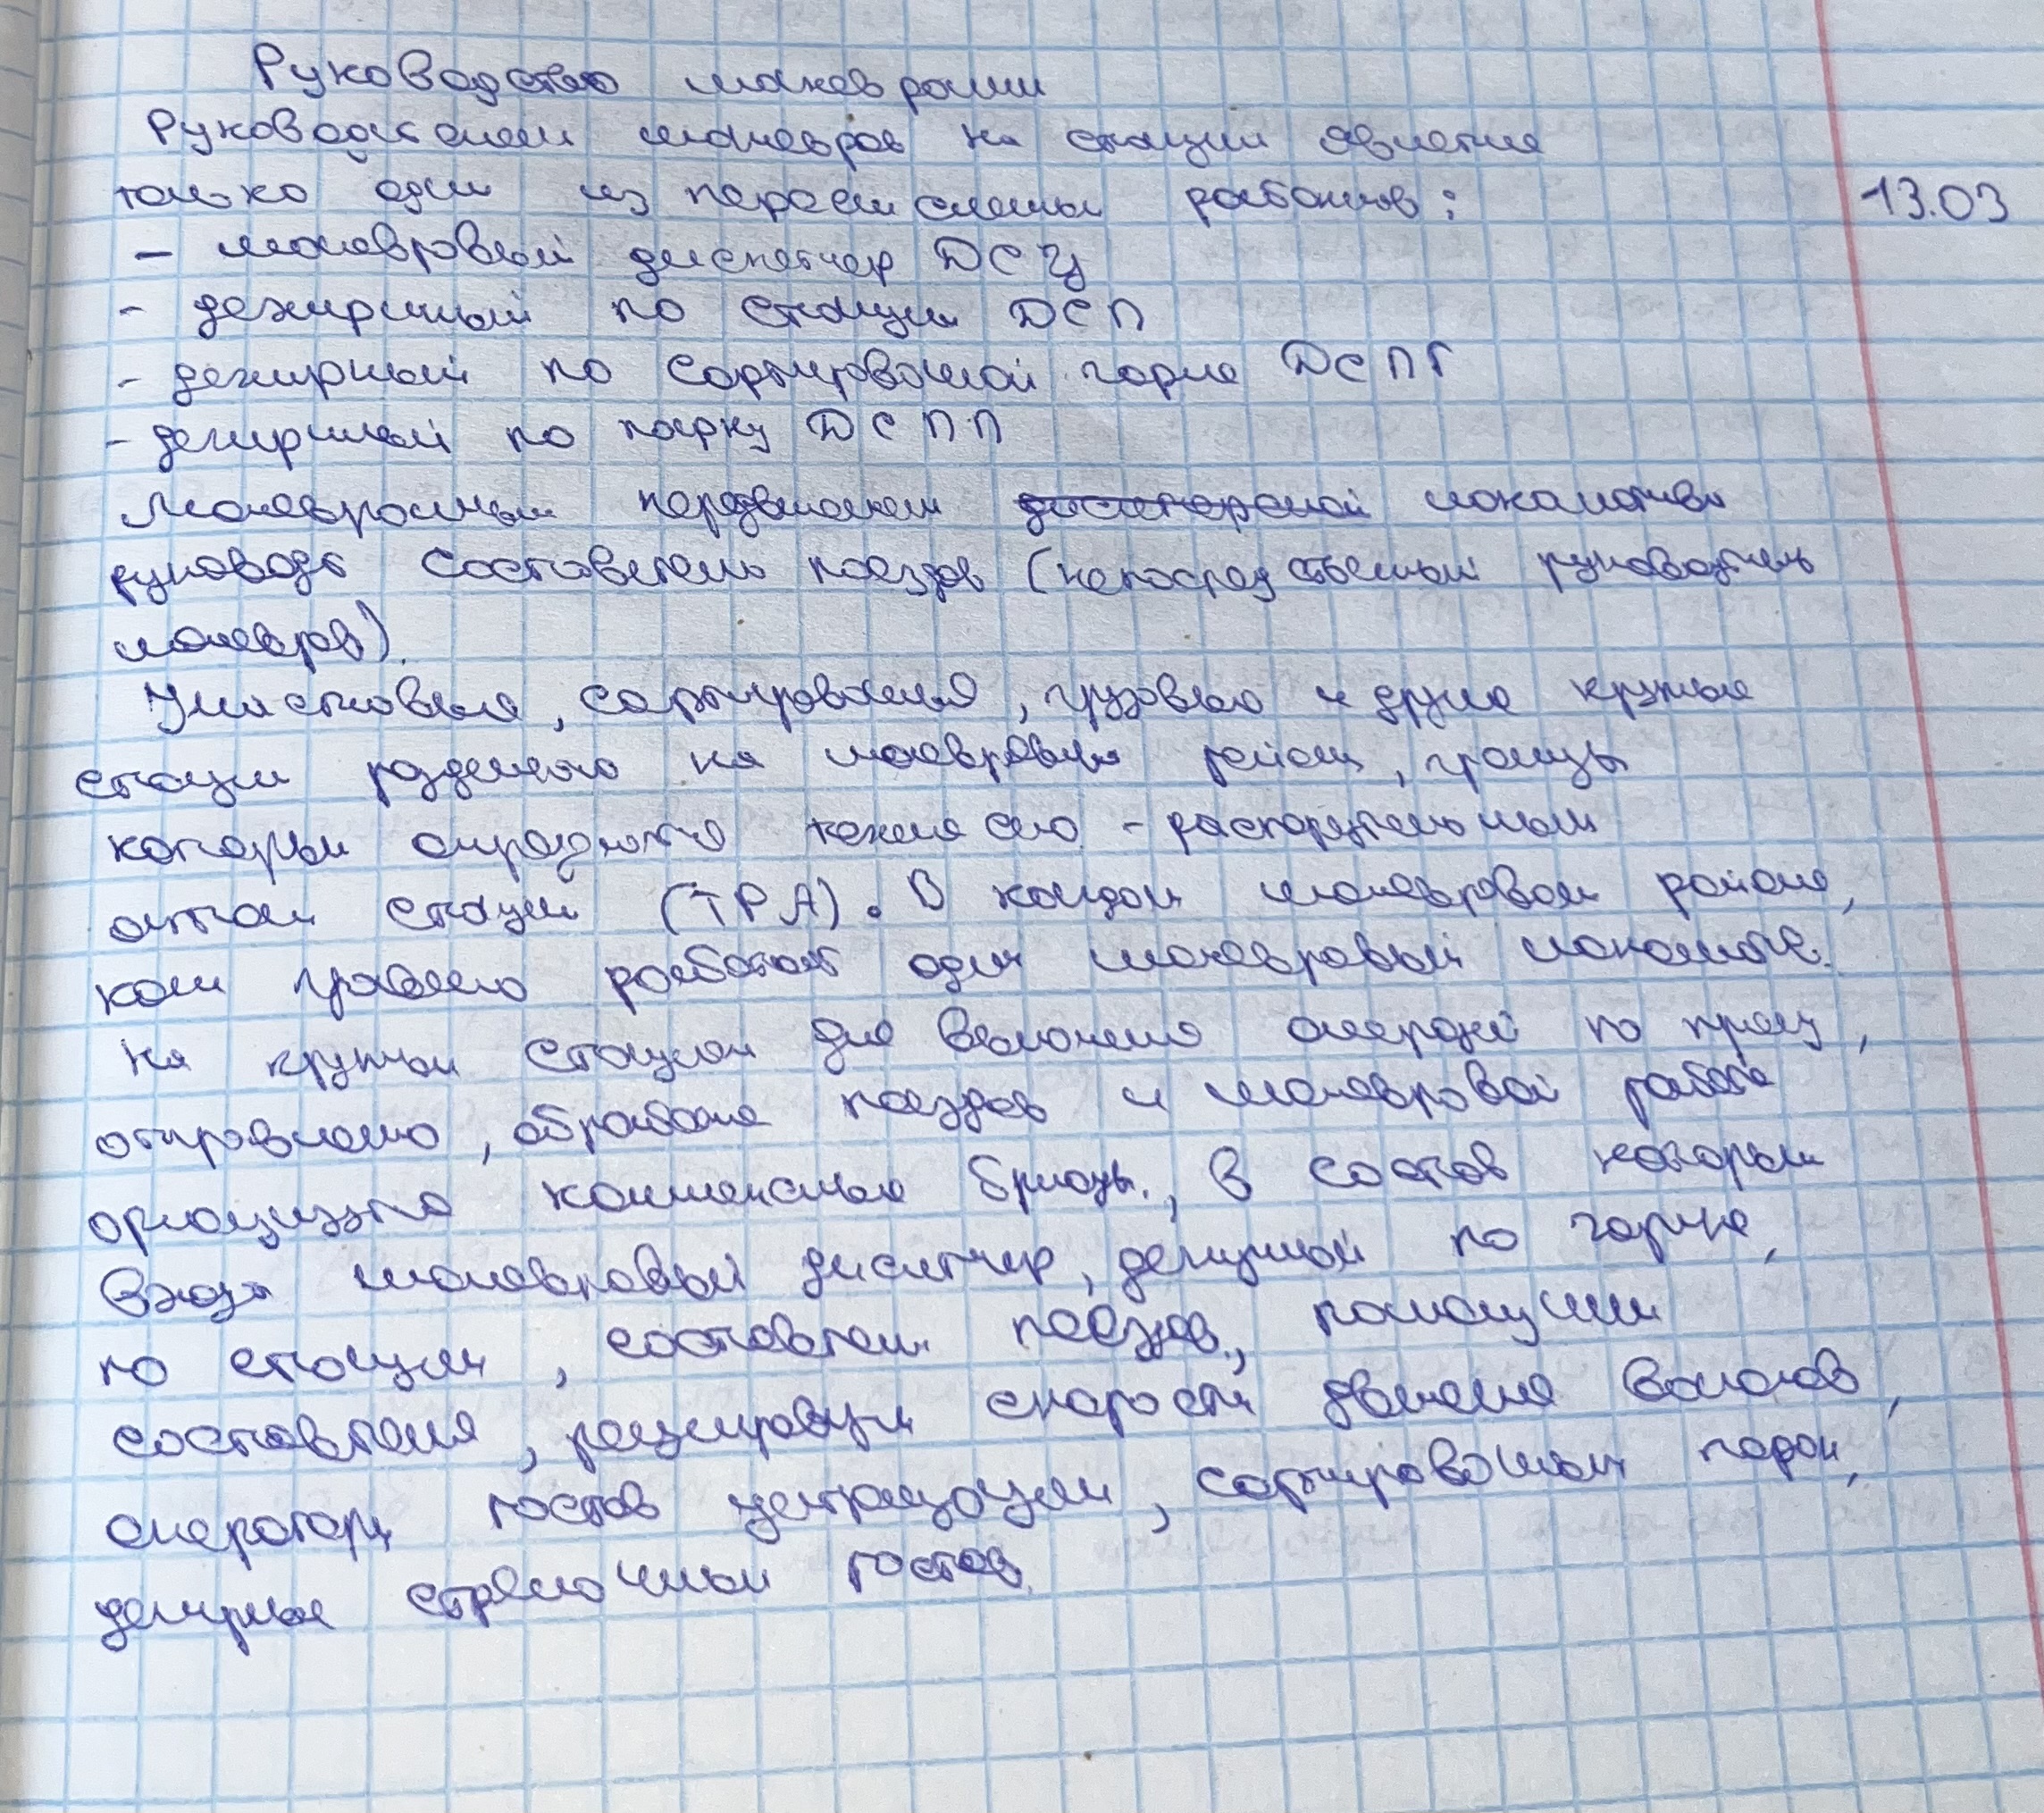 Руководство маневрами
Руководителем маневров на станции является
только один из перечисленных работников:
13.03
- маневровый диспетчер ДСЦ
- дежурный по станции ДСП
- дежурный по сортировочной горке ДСПГ
- дежурный по парку ДСПП
Маневровыми передвижением локомотива
руководит составитель поездов (непосредственный руководитель
маневров).
Участковые, сортировочные, грузовые и другие крупные
станции разделено на маневровые районы, границы
которых определяются техническо - распорядительным
актом станции (ТРА). В каждом маневровом районе,
как правило работает один маневровый локомотив.
На крупных станциях для выполнения операций по приему,
отправлению, обработке поездов и маневровой работе
организуются комплексные бригады, в состав которых
входят маневровый диспетчер, дежурный по горке,
по станции, составители поездов, помощники
составителя, регулировщики скорости движения вагонов,
операторы постов централизации, сортировочных горок,
дежурные стрелочных постов.